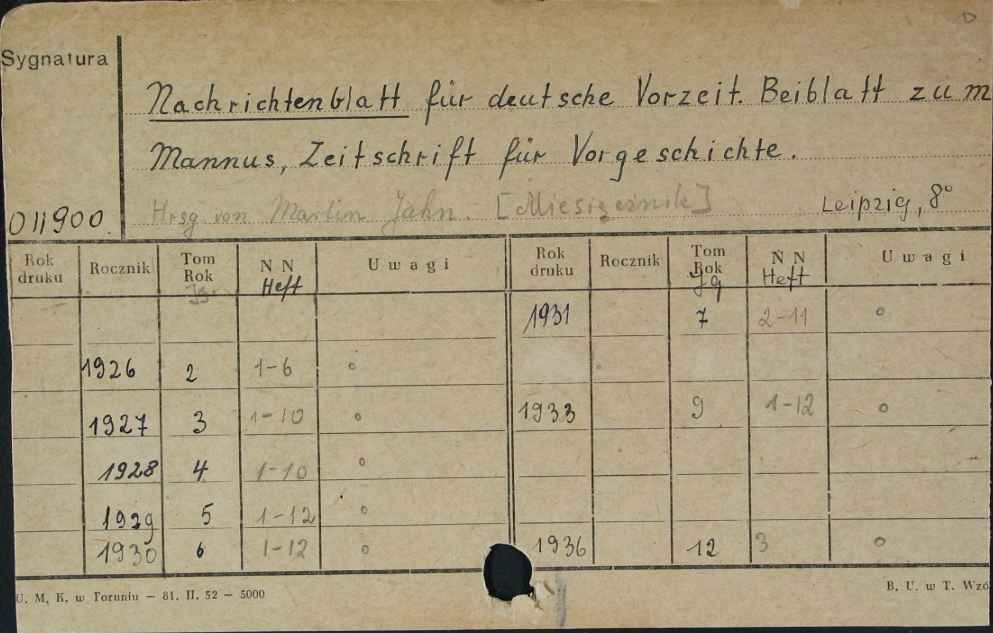 D
Sygnatura
Nachrichtenblatt für deutsche Vorzeit. Beiblatt zum
Mannus, Zeitschrift für Vorgeschichte.
011900. Hrsg. von Martin Jahn. [Miesięcznik] Leipzig, 8°
Rok druku Rocznik Tom Rok Jg. N N Heft Uwagi Rok druku Rocznik Tom Rok Jg N N Heft Uwagi
1931 7 2-11 o
1926 2 1-6 o
1927 3 1-10 o 1933 9 1-12 o
1928 4 1-10 o
1929 5 1-12 o
1930 6 1-12 o 1936 12 3 o
U. M. K. w Toruniu — 81. II. 52 — 5000 B. U. w T. Wzó